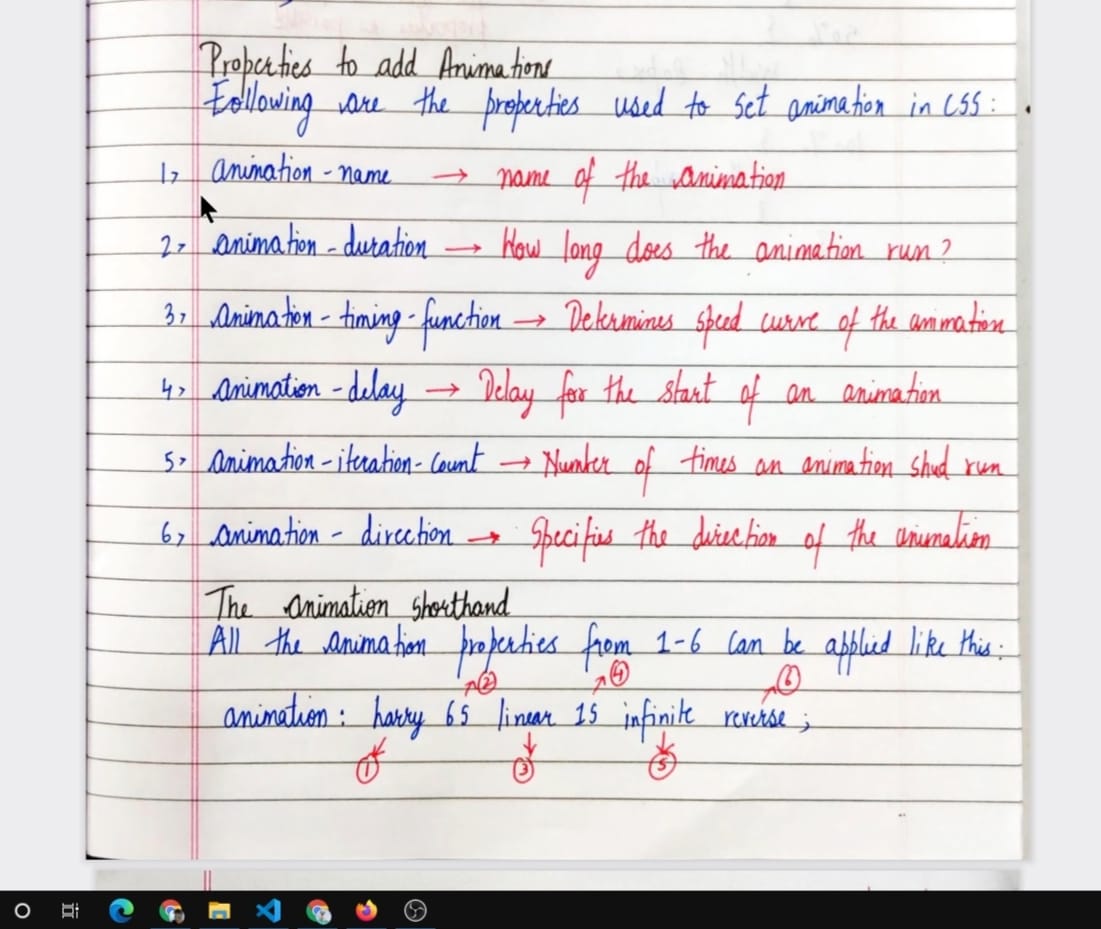 Properties to add Animations
Following are the properties used to set animation in CSS :
1> animation - name → name of the animation
2> animation - duration → How long does the animation run ?
3> animation - timing - function → Determines speed curve of the animation
4> animation - delay → Delay for the start of an animation
5> animation - iteration - count → Number of times an animation shud run
6> animation - direction → Specifies the direction of the animation
The animation shorthand
All the animation properties from 1-6 can be applied like this :
② ④ ⑥
animation : harry 6s linear 1s infinite reverse ;
① ③ ⑤